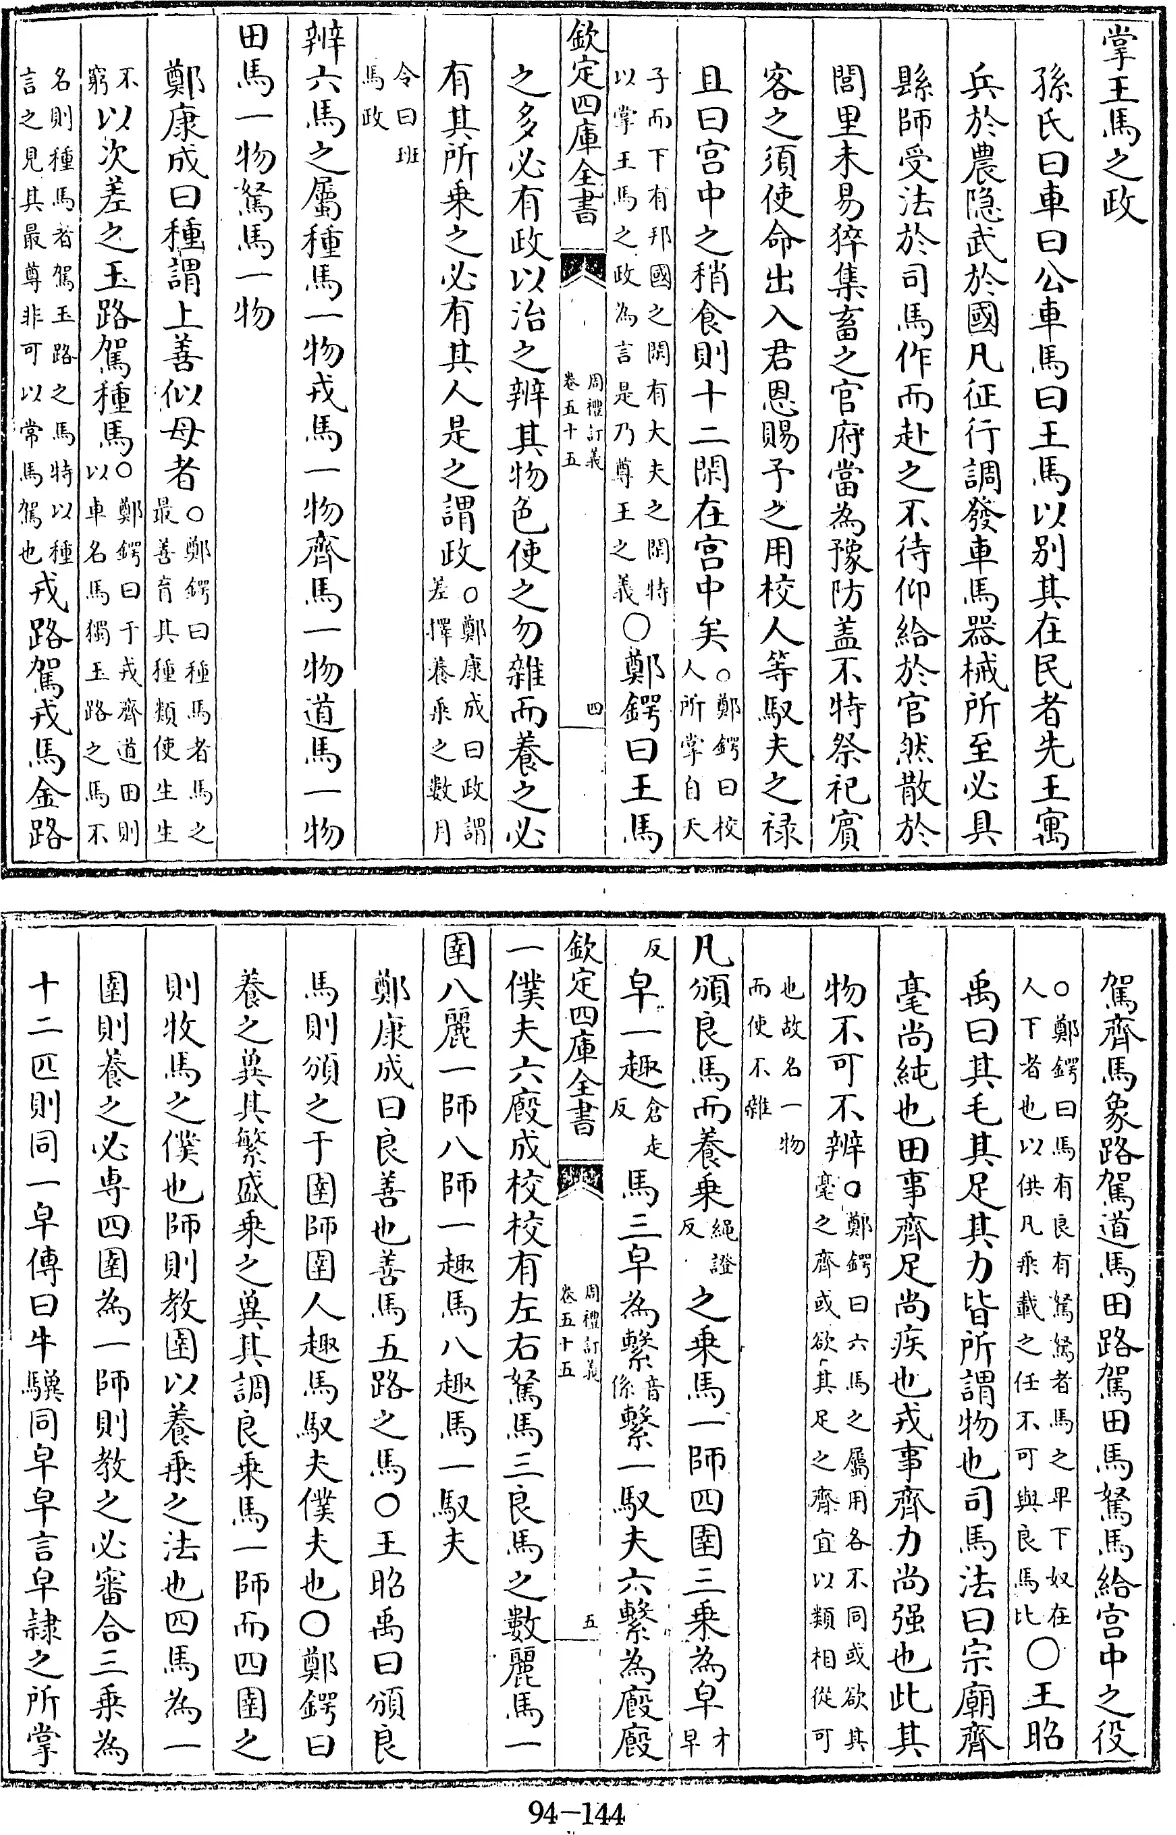 掌王馬之政
孫氏曰車曰公車馬曰王馬以别其在民者先王寓
兵於農隐武於國凡征行調發車馬器械所至必具
縣師受法於司馬作而赴之不待仰給於官然散於
閭里未易猝集畜之官府當為豫防盖不特祭祀賓
客之須使命出入君恩賜予之用校人等馭夫之禄
且曰宫中之稍食則十二閑在宫中矣○鄭鍔曰校人所掌自天
子而下有邦國之閑有大夫之閑特以掌王馬之政為言是乃尊王之義○鄭鍔曰王馬
欽定四庫全書 周禮訂義卷五十五 四
之多必有政以治之辨其物色使之勿雜而養之必
有其所乗之必有其人是之謂政○鄭康成曰政謂差擇養乗之數月
令曰班馬政
辨六馬之屬種馬一物戎馬一物齊馬一物道馬一物
田馬一物駑馬一物
鄭康成曰種謂上善似母者○鄭鍔曰種馬者馬之最善育其種類使生生
不窮以次差之玉路駕種馬○鄭鍔曰于戎齊道田則以車名馬獨玉路之馬不
名則種馬者駕玉路之馬特以種言之見其最尊非可以常馬駕也戎路駕戎馬金路
駕齊馬象路駕道馬田路駕田馬駑馬給宫中之役
○鄭鍔曰馬有良有駑駑者馬之卑下奴在人下者也以供凡乗載之任不可與良馬比○王昭
禹曰其毛其足其力皆所謂物也司馬法曰宗廟齊
毫尚純也田事齊足尚疾也戎事齊力尚强也此其
物不可不辨○鄭鍔曰六馬之屬用各不同或欲其毫之齊或欲其足之齊宜以類相從可
也故名一物而使不雜
凡頒良馬而養乗繩證反之乗馬一師四圉三乗為皁才早
反皁一趣倉走反馬三皁為繫音係繫一馭夫六繫為廄廄
欽定四庫全書 周禮訂義卷五十五 五
一僕夫六廄成校校有左右駑馬三良馬之數麗馬一
圉八麗一師八師一趣馬八趣馬一馭夫
鄭康成曰良善也善馬五路之馬○王昭禹曰頒良
馬則頒之于圉師圉人趣馬馭夫僕夫也○鄭鍔曰
養之兾其繁盛乗之兾其調良乗馬一師而四圉之
則牧馬之僕也師則教圉以養乗之法也四馬為一
圉則養之必専四圉為一師則教之必審合三乗為
十二匹則同一皁傳曰牛驥同皁皁言皁隷之所掌
94-144